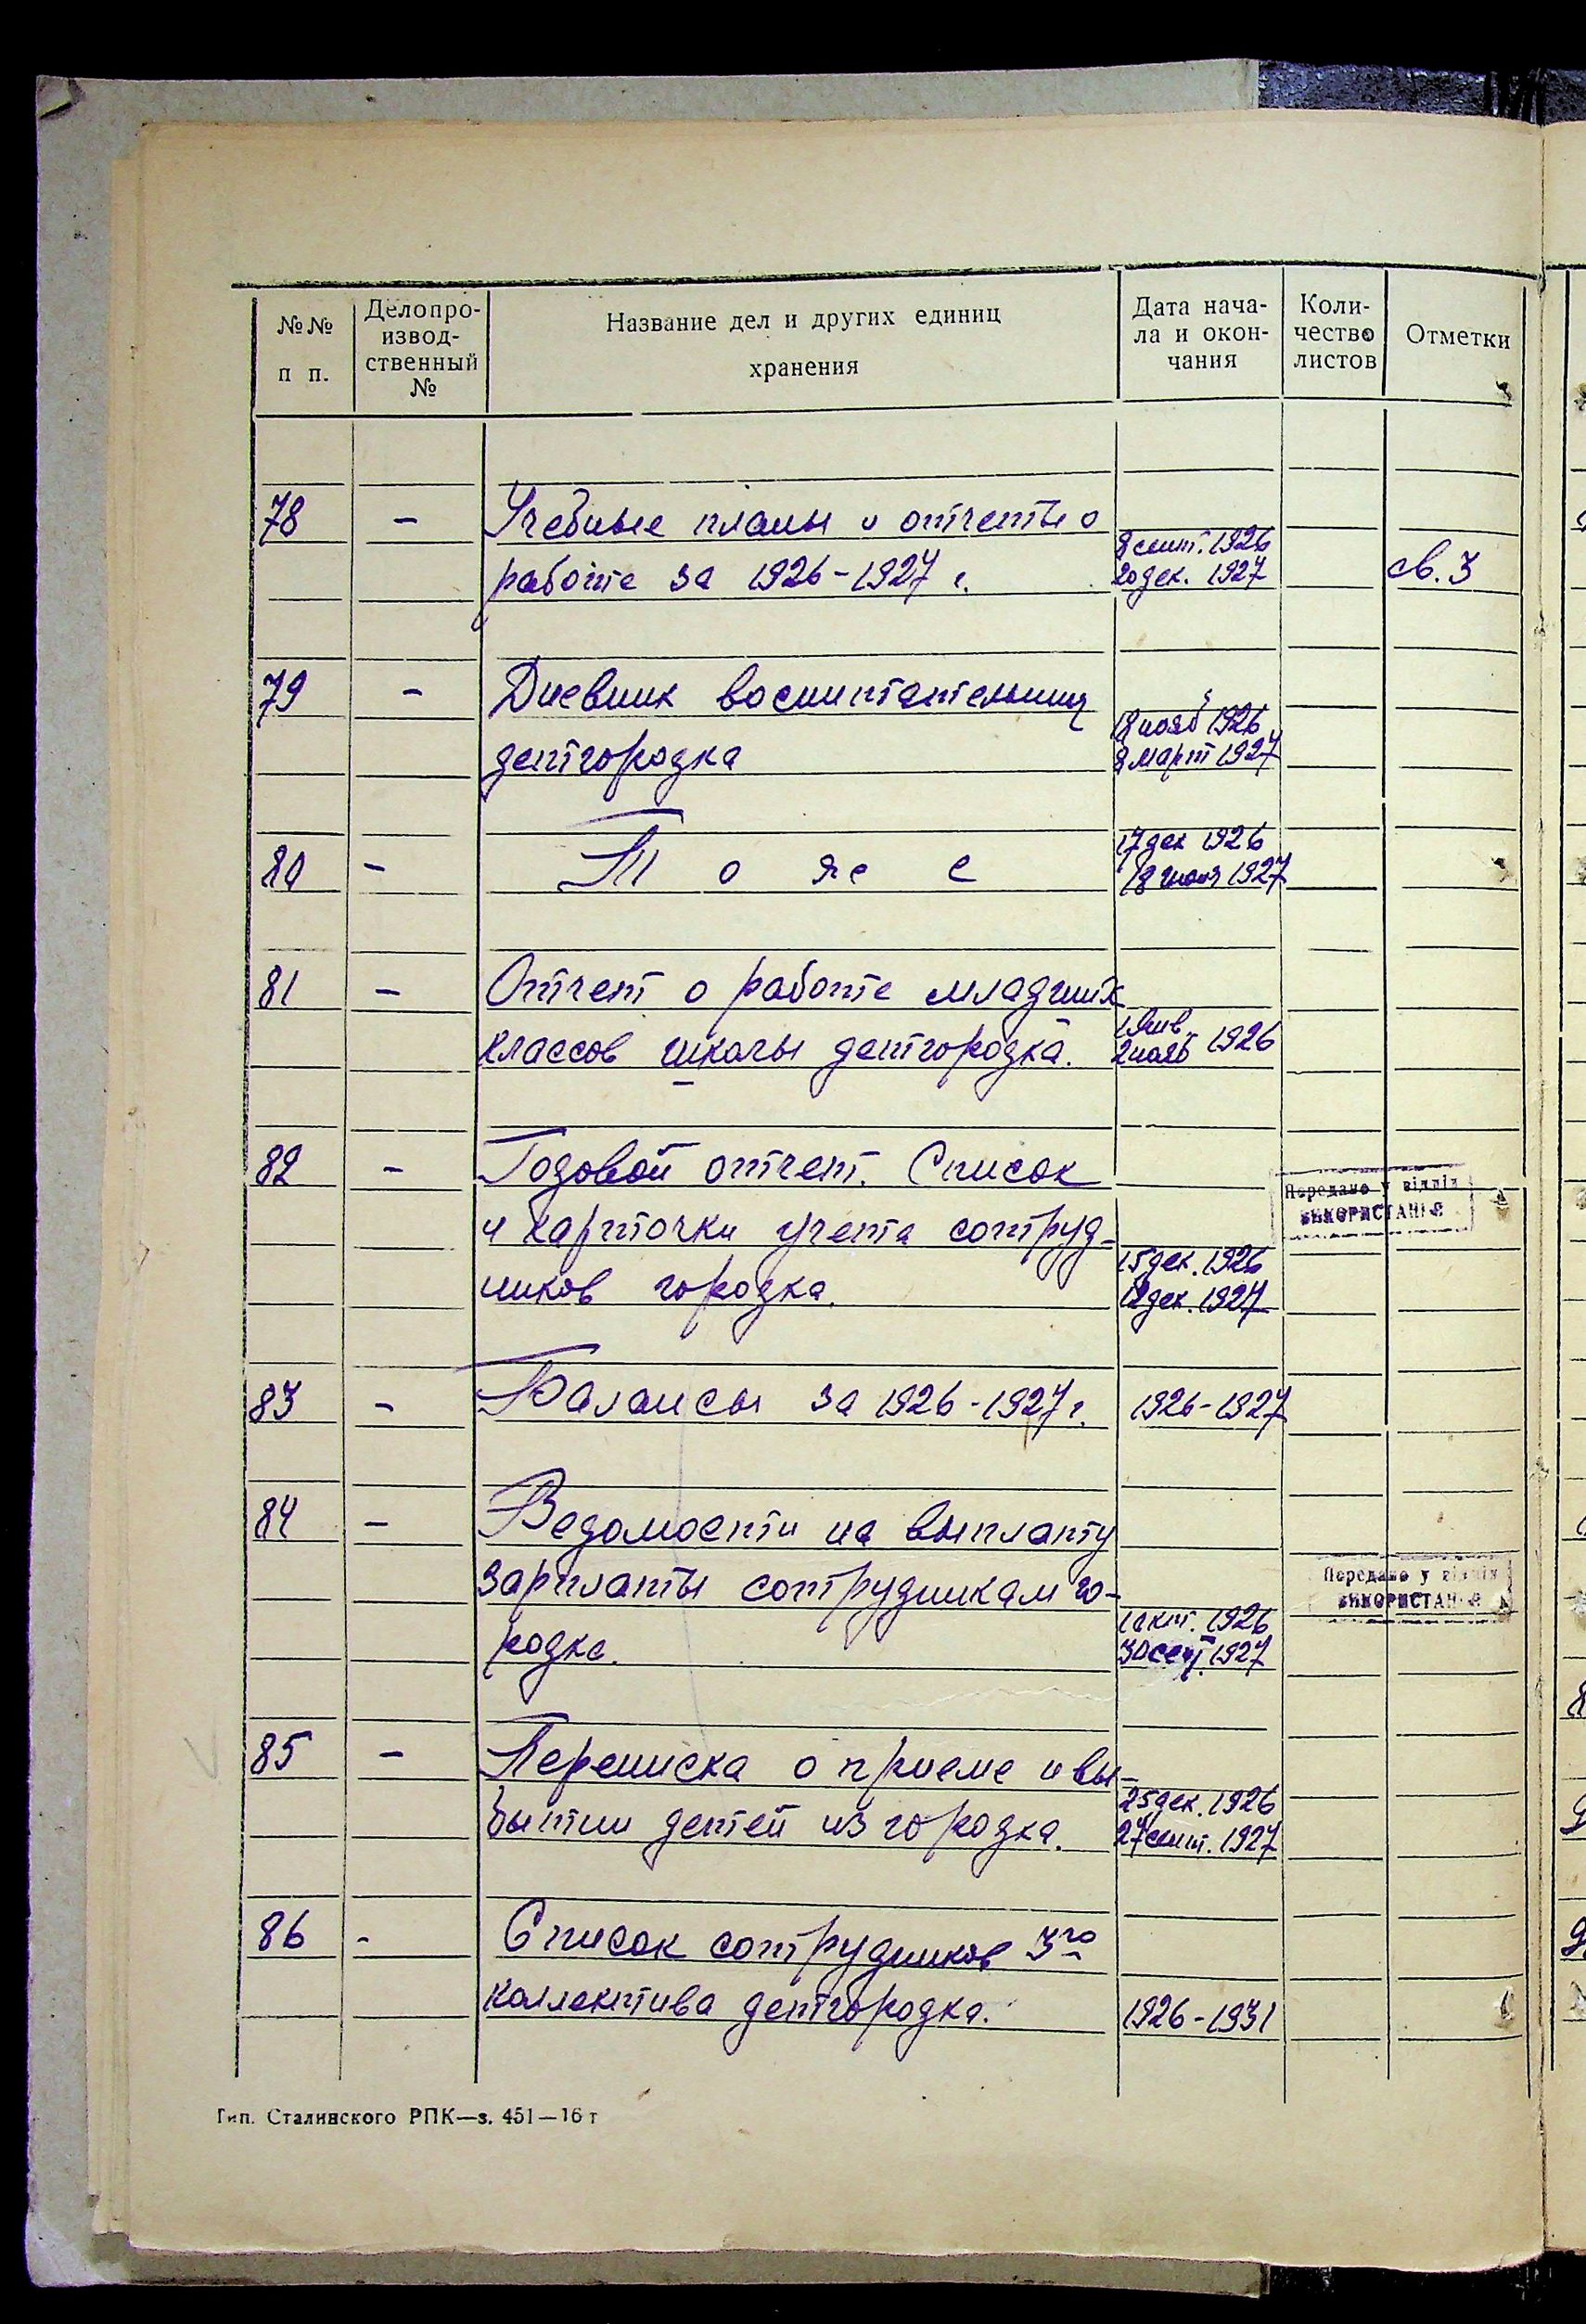 №№ п п.
Делопро-
извод-
ственный
№
Название дел и других единиц
хранения
Дата нача-
ла и окон-
чания
Коли-
чество
листов
Отметки
78 - Учебные планы и отчеты о
8 сент. 1926
работе за 1926-1927 г. 20 дек. 1927 св. 3
79 - Дневник воспитательниц
18 нояб 1926
детгородка 8 март 1927
17 дек 1926
80 - Т о ж е 18 июня 1927
81 - Отчет о работе младших
1 янв.
классов школы детгородка. 2 нояб 1926
82 - Годовой отчет. Список
Передано у відділ
використання
и карточки учета сотруд-
15 дек. 1926
ников городка. 12 дек. 1927
83 - Балансы за 1926-1927 г. 1926-1927
84 - Ведомости на выплату
Передано у відділ
використання
зарплаты сотрудникам го-
1 окт. 1926
родка. 30 сент. 1927
85 - Переписка о приеме и вы-
25 дек. 1926
бытии детей из городка. 27 сент. 1927
86 - Список сотрудников 3го
коллектива детгородка. 1926-1931
Тип. Сталинского РПК—з. 451—16 т